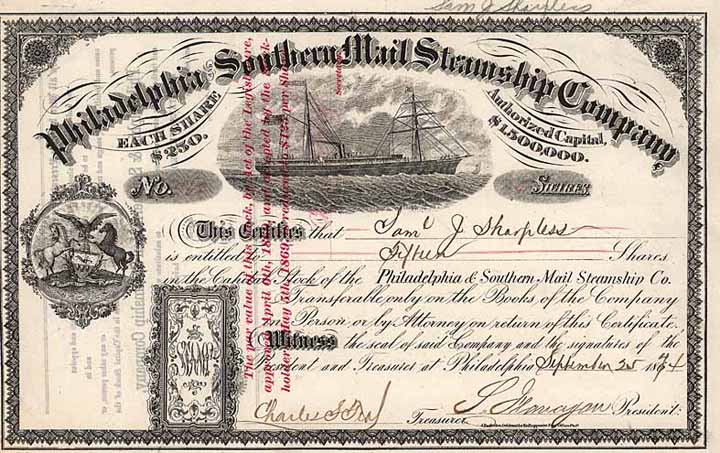 Sam J Sharpless
Philadelphia & Southern Mail Steamship Company
EACH SHARE
$250.
Authorized Capital,
$1,500,000.
No.
SHARES
This Certifies that Saml J. Sharpless
is entitled to Fifteen Shares
in the Capital Stock of the Philadelphia & Southern Mail Steamship Co.
Transferable only on the Books of the Company
in Person or by Attorney on return of this Certificate.
Witness the seal of said Company and the signatures of the
President and Treasurer at Philadelphia September 25 1874
Charles S Treasurer. President.
The par value of this Stock, by Act of the Legislature,
approved April 6th, and accepted by the Stock-
holders May 5th, 1869, reduced to $125 per Share
Secretary.